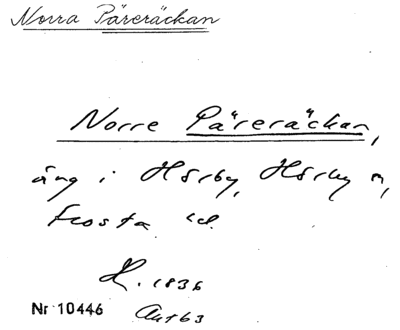 Norra Päreräckan
Norre Päreräckan,
äng i Hörby, Hörby sn,
Frosta hd.
LL. 1836
Nr 10446 Akt 63